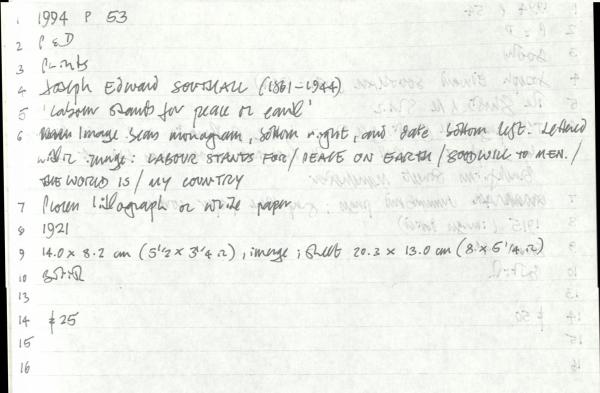 1 1994 P 53
2 P & D
3 Prints
4 Joseph Edward SOUTHALL (1861-1944)
5 'Labour stands for peace on earth'
6 Image bears monogram, bottom right, and date bottom left. Lettered
within image: LABOUR STANDS FOR / PEACE ON EARTH / GOODWILL TO MEN. /
THE WORLD IS / MY COUNTRY
7 lithograph on white paper
8 1921
9 14.0 x 8.2 cm (5 1/2 x 3 1/4 in), image; sheet 20.3 x 13.0 cm (8 x 5 1/4 in)
10 British
13
14 £25
15
16